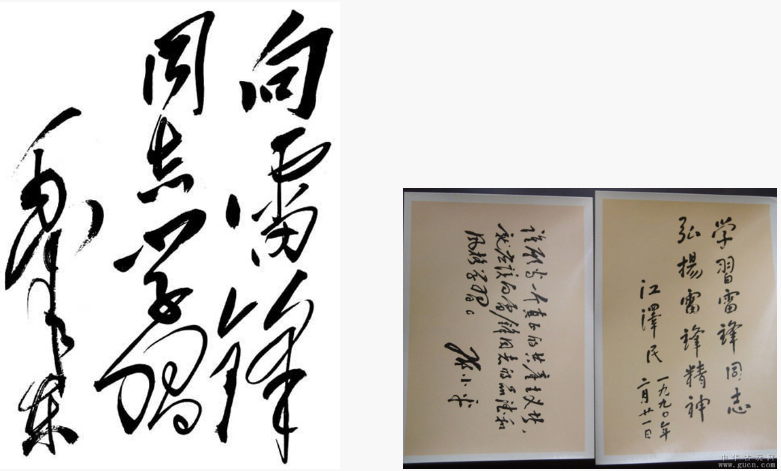 向雷锋
同志学習
毛泽东
谁愿当一个真正的共产主义者，
就应该向雷锋同志的品德和
风格学习。
邓小平
学習雷鋒同志
弘揚雷鋒精神
江澤民
一九九〇年
二月廿一日
www.gucn.com